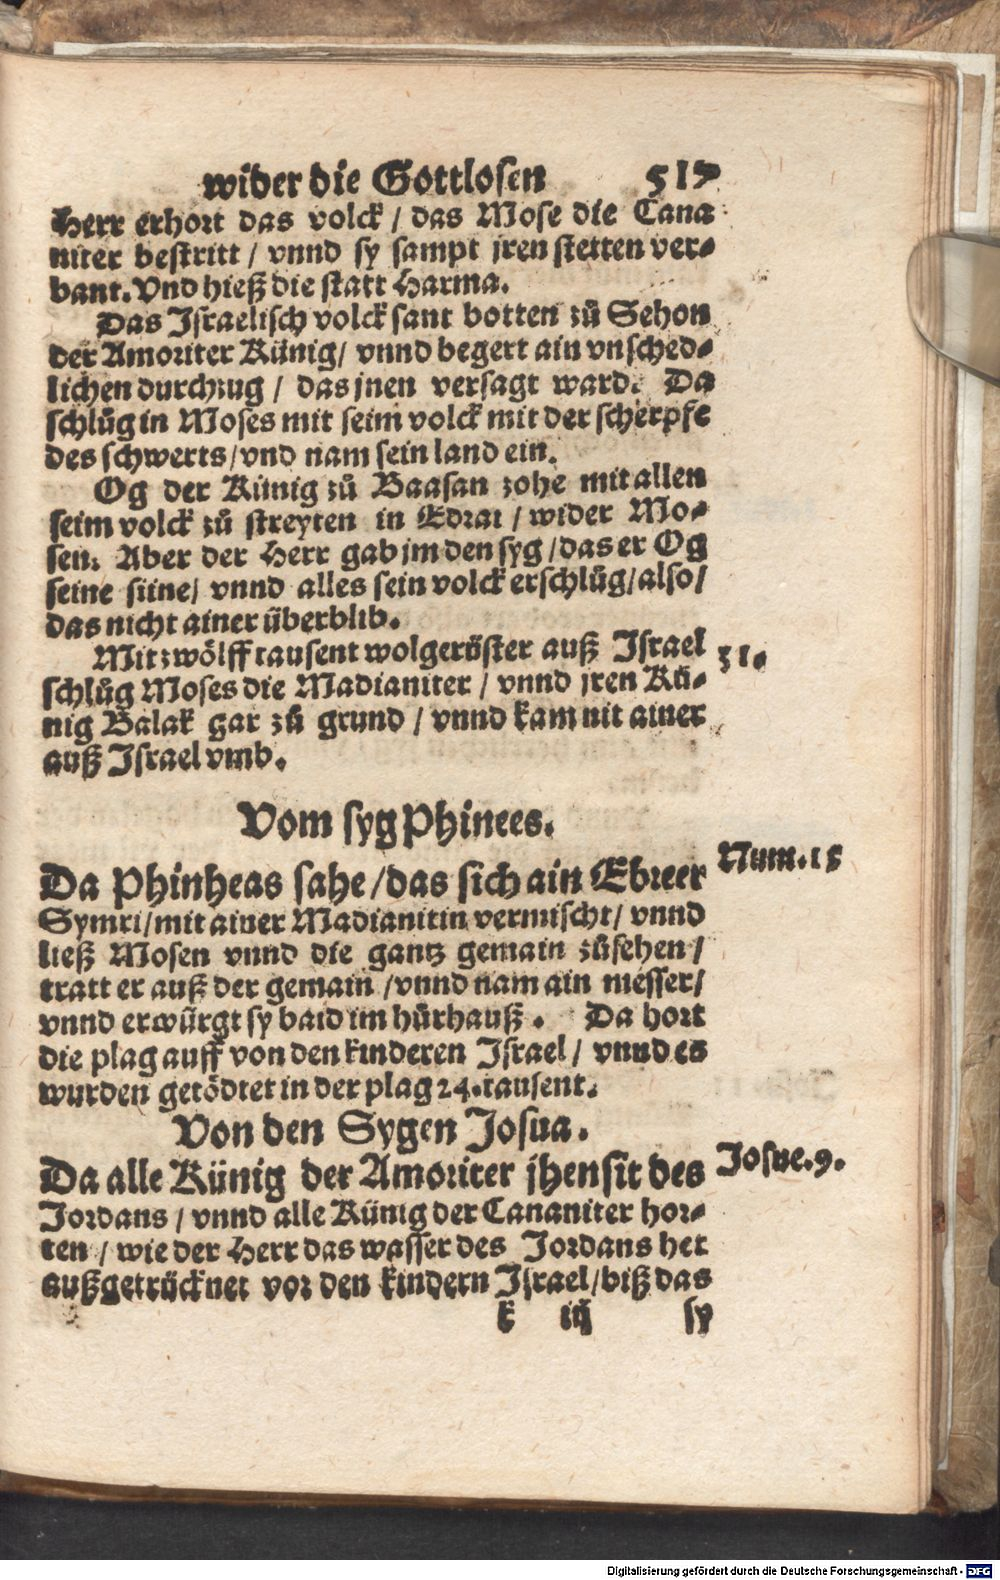 wider die Gottlosen 517
Herr erhort das volck / das Mose die Cana
niter bestritt / vnnd sy sampt jren stetten ver-
bant. Vnd hieß die statt Harma.
Das Israelisch volck sant botten zů Sehon
der Amoriter Künig / vnnd begert ain vnsched-
lichen durchzug / das jnen versagt ward. Da
schlůg in Moses mit seim volck mit der scherpfe
des schwerts / vnd nam sein land ein.
Og der Künig zů Baasan zohe mit allen
seim volck zů streyten in Edrai / wider Mo-
sen. Aber der Herr gab jm den syg / das er Og
seine süne / vnnd alles sein volck erschlůg / also /
das nicht ainer überblib.
Mit zwölff tausent wolgerüster auß Israel 31.
schlůg Moses die Madianiter / vnnd jren Kü-
nig Balak gar zů grund / vnnd kam nit ainer
auß Israel vmb.
Vom syg Phinees.
Da Phinheas sahe / das sich ain Ebreer Num. 15
Symri / mit ainer Madianitin vermischt / vnnd
ließ Mosen vnnd die gantz gemain zůsehen /
tratt er auß der gemain / vnnd nam ain messer /
vnnd erwürgt sy baid im hůrhauß. Da hort
die plag auff von den kinderen Israel / vnnd es
wurden getödtet in der plag 24. tausent.
Von den Sygen Josua.
Da alle Künig der Amoriter jhensit des Josue. 9.
Jordans / vnnd alle Künig der Cananiter hor-
ten / wie der Herr das wasser des Jordans het
außgetrücknet vor den kindern Israel / biß das
k iij sy
Digitalisierung gefördert durch die Deutsche Forschungsgemeinschaft - DFG